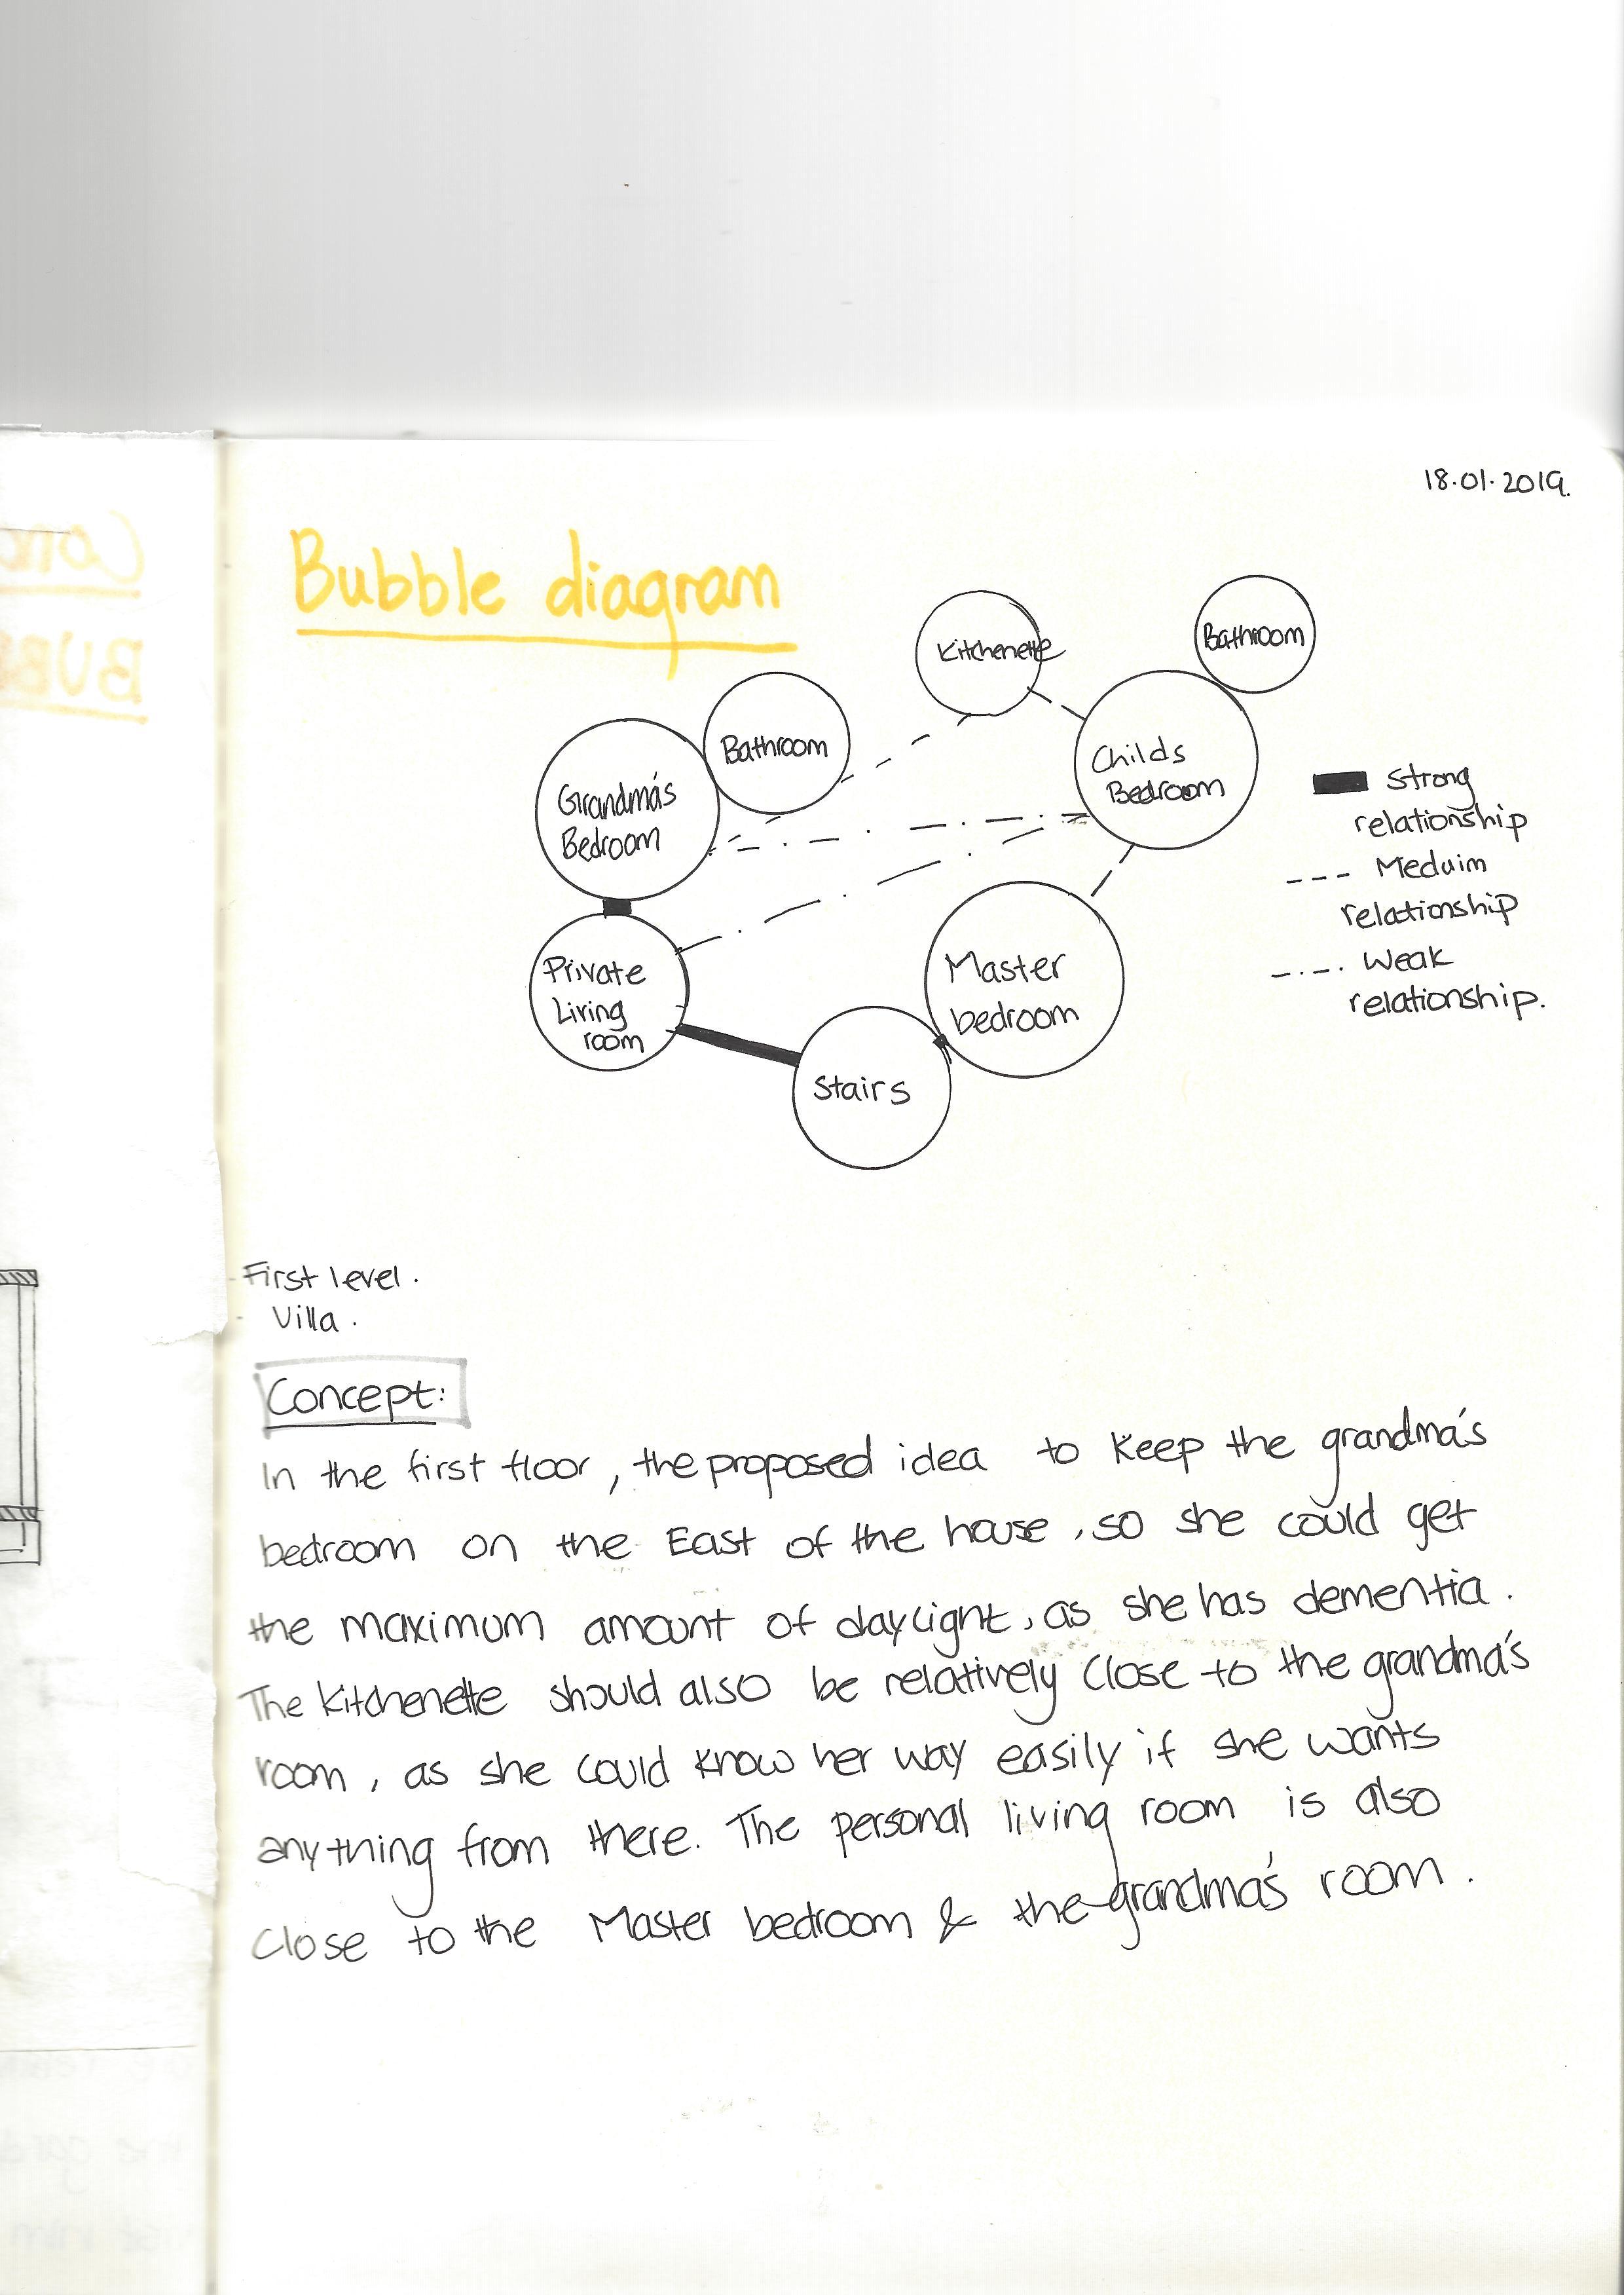 18.01.2019.
Bubble diagram
Kitchenette
Bathroom
Bathroom
Childs
Bedroom
Grandma's
Bedroom
Strong
relationship
--- Meduim
relationship
-.-. Weak
relationship.
Private
Living
room
Master
bedroom
Stairs
- First level.
- Villa.
Concept:
In the first floor, the proposed idea to keep the grandma's
bedroom on the East of the house, so she could get
the maximum amount of daylight, as she has dementia.
The kitchenette should also be relatively close to the grandma's
room, as she could know her way easily if she wants
anything from there. The personal living room is also
close to the Master bedroom & the grandma's room.